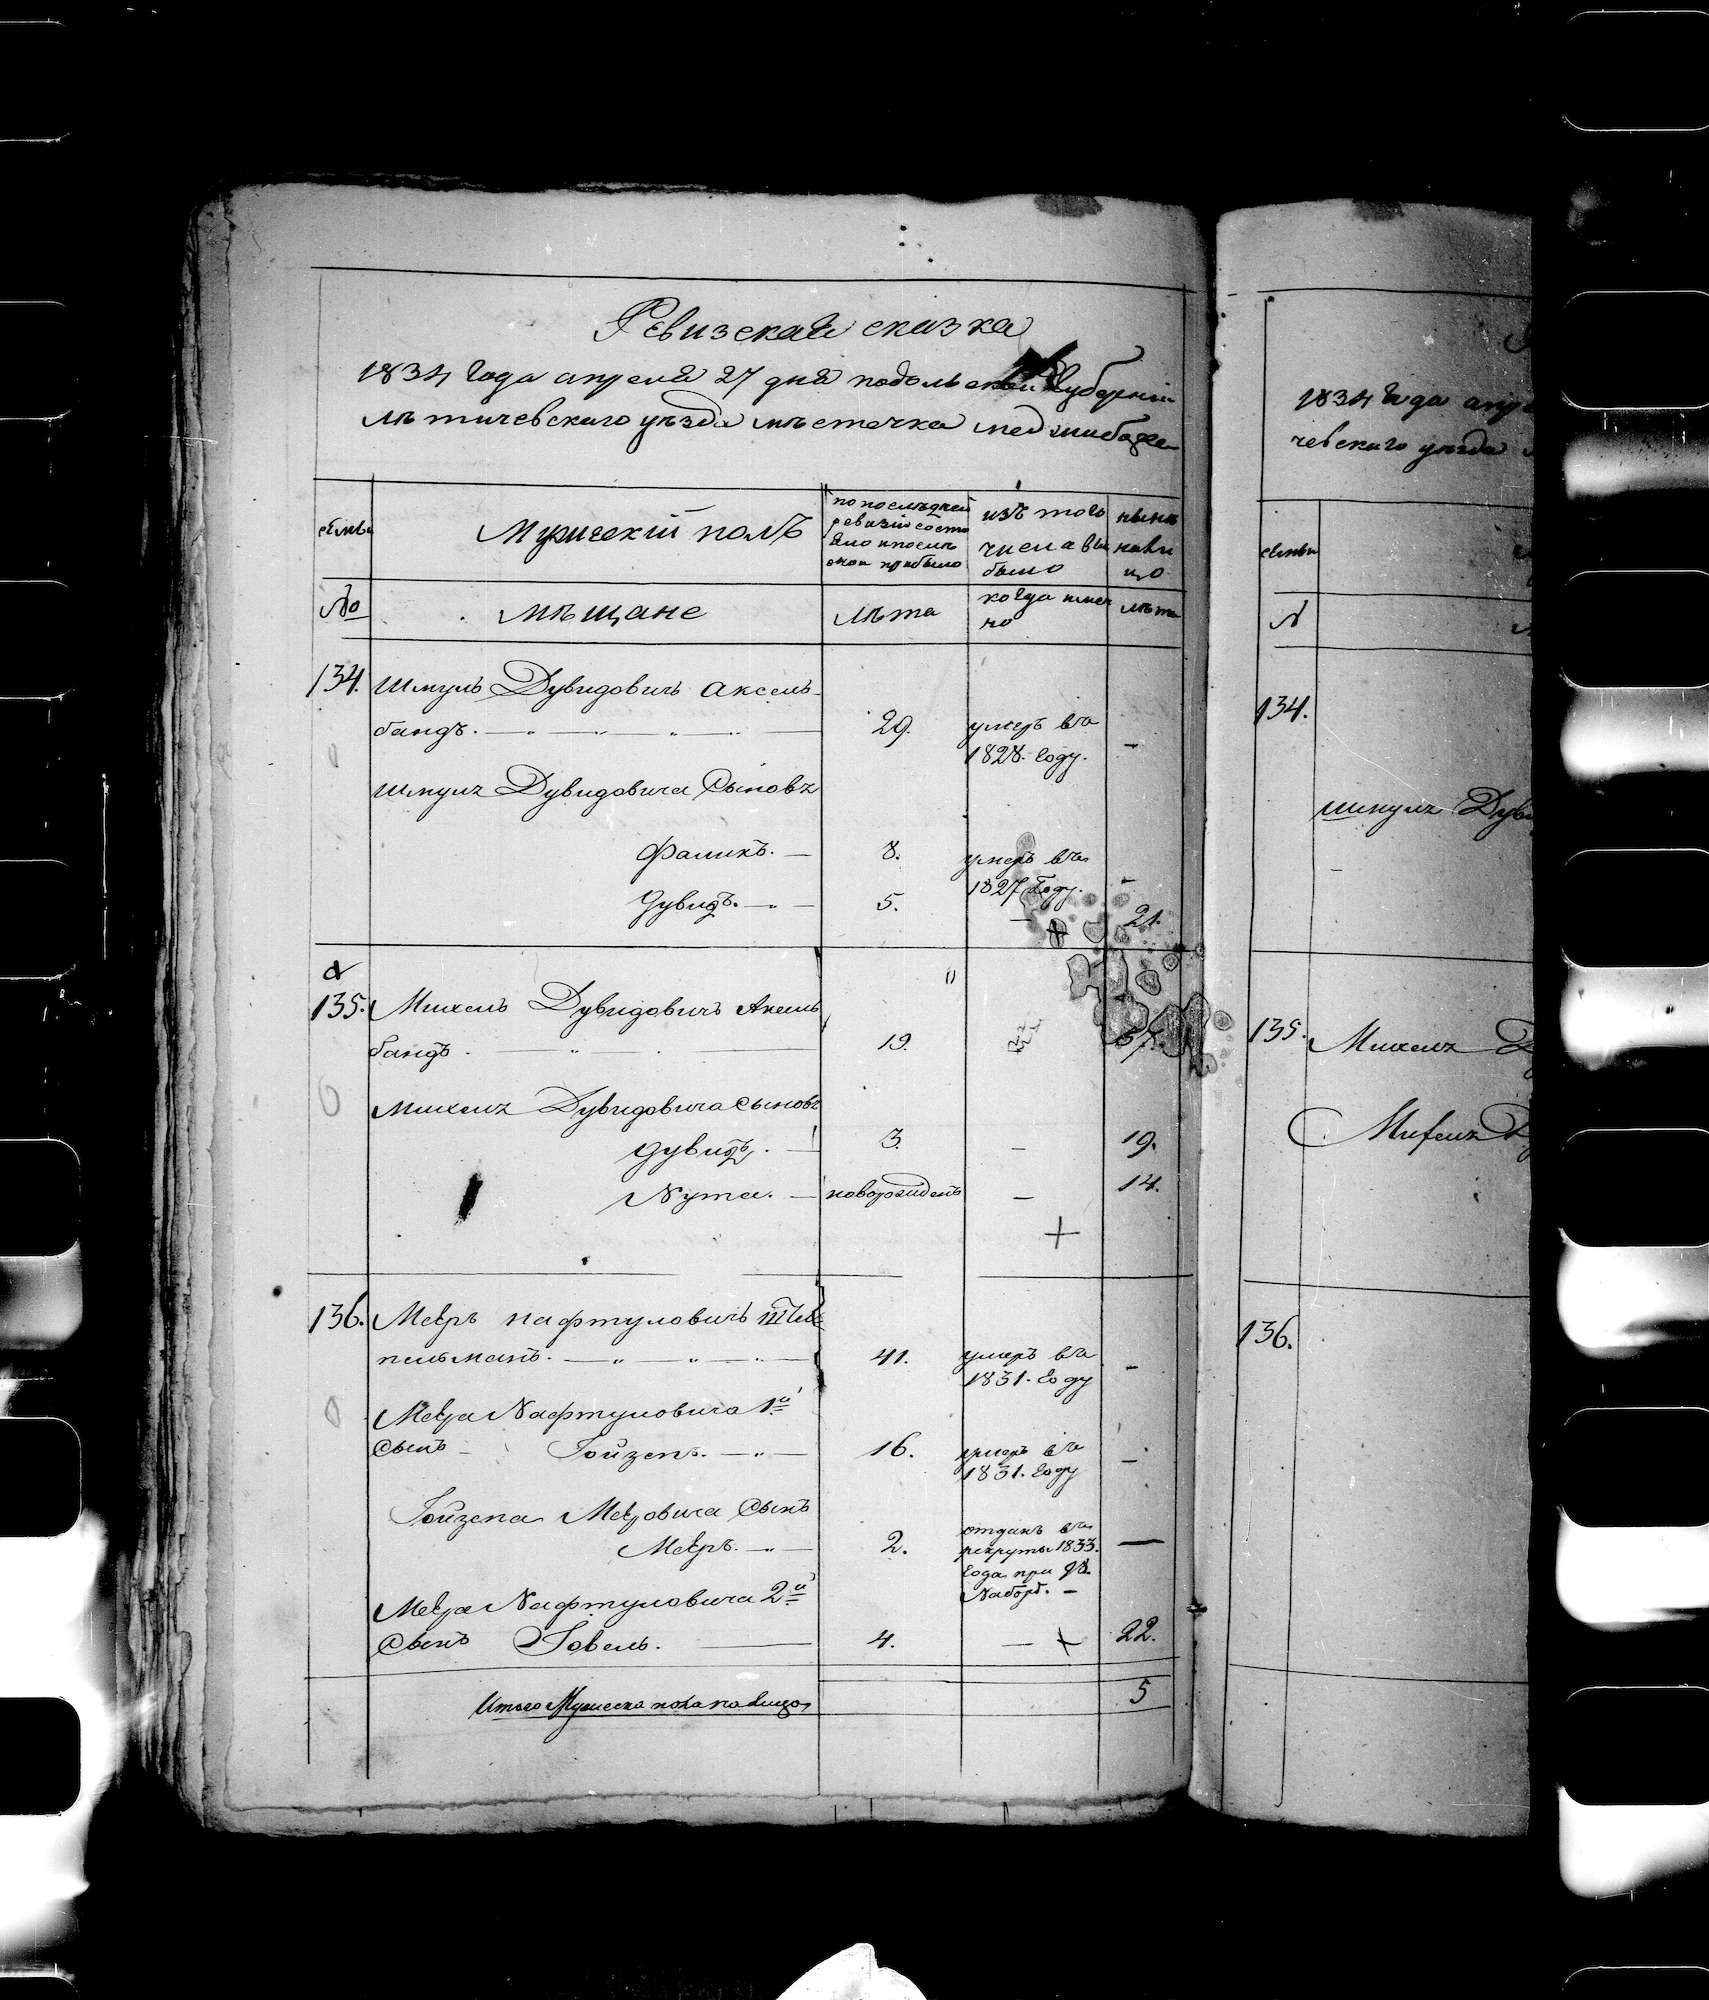 Ревизская сказка
1834 года апреля 27 дня подольской Губернiи
лѣтичевского уѣзда мѣстечка меджибожа
семьи
Мужескiй полъ
по последней
ревизiи состо
яло и после
оной прибыло
изъ того
числа вы
было
ныне
нали
цо
№
мѣщане
лѣта
когда имен
но
лѣта
134. Шмуль Дувидовичъ Аксель-
бандъ. — „ — „ — „ — „ — 29. умеръ въ
1828. году. -
Шмуля Дувидовича Сыновья
Фаликъ. — 8. умеръ въ
1827 Году. -
Дувидъ. — „ — 5. — + 21.
135. Михель Дувидовичъ Аксель
бандъ. — „ — . — 19. 37.
Михеля Дувидовича Сыновья
Дувидъ. — 3. — 19.
Нута. — новорожденъ — 14.
+
136. Мееръ Нафтуловичъ
пельманъ. — „ — „ — „ — 41. умеръ въ
1831. Году -
Меера Нафтуловича 1й
Сынъ - Гойзепъ. — „ — 16. умеръ въ
1831. Году —
Гойзепа Меровича Сынъ
Мееръ. — „ — 2. отданъ въ
рекруты 1833.
Года при
Наборѣ. - —
Меера Нафтуловича 2й
Сынъ Говель. — 4. — + 22.
Итого Мужеска пола на лицо 5
1834 Года апре
чевского уезда
семьи
№
134.
Шмуля Дуви
135. Михеля Д
Михеля Д
136.